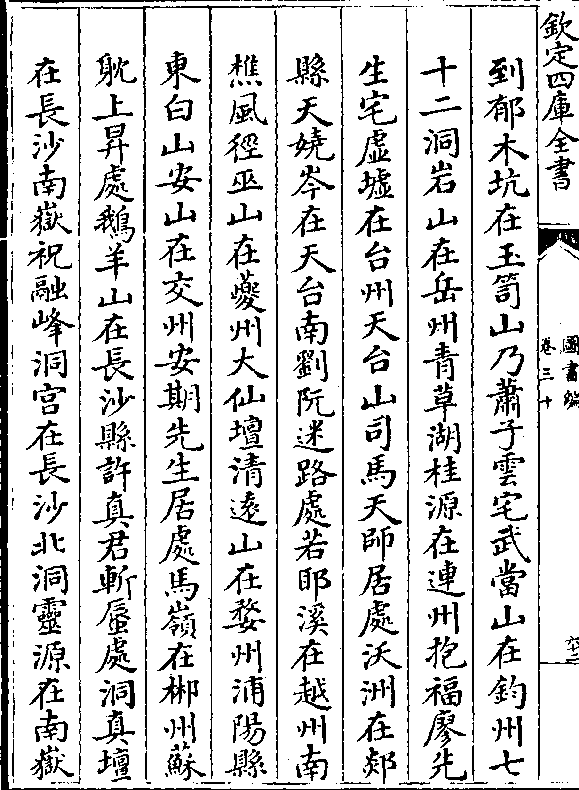 欽定四庫全書
圖書編
卷三十
到郁木坑在玉笥山乃蕭子雲宅武當山在鈞州七
十二洞岩山在岳州青草湖桂源在連州抱福廖先
生宅虛墟在台州天台山司馬天師居處沃洲在郯
縣天嬈岑在天台南劉阮迷路處若耶溪在越州南
樵風徑巫山在夔州大仙壇清遠山在婺州浦陽縣
東白山安山在交州安期先生居處馬嶺在郴州蘇
躭上昇處鵝羊山在長沙縣許真君斬蜃處洞真壇
在長沙南嶽祝融峰洞宮在長沙北洞靈源在南嶽